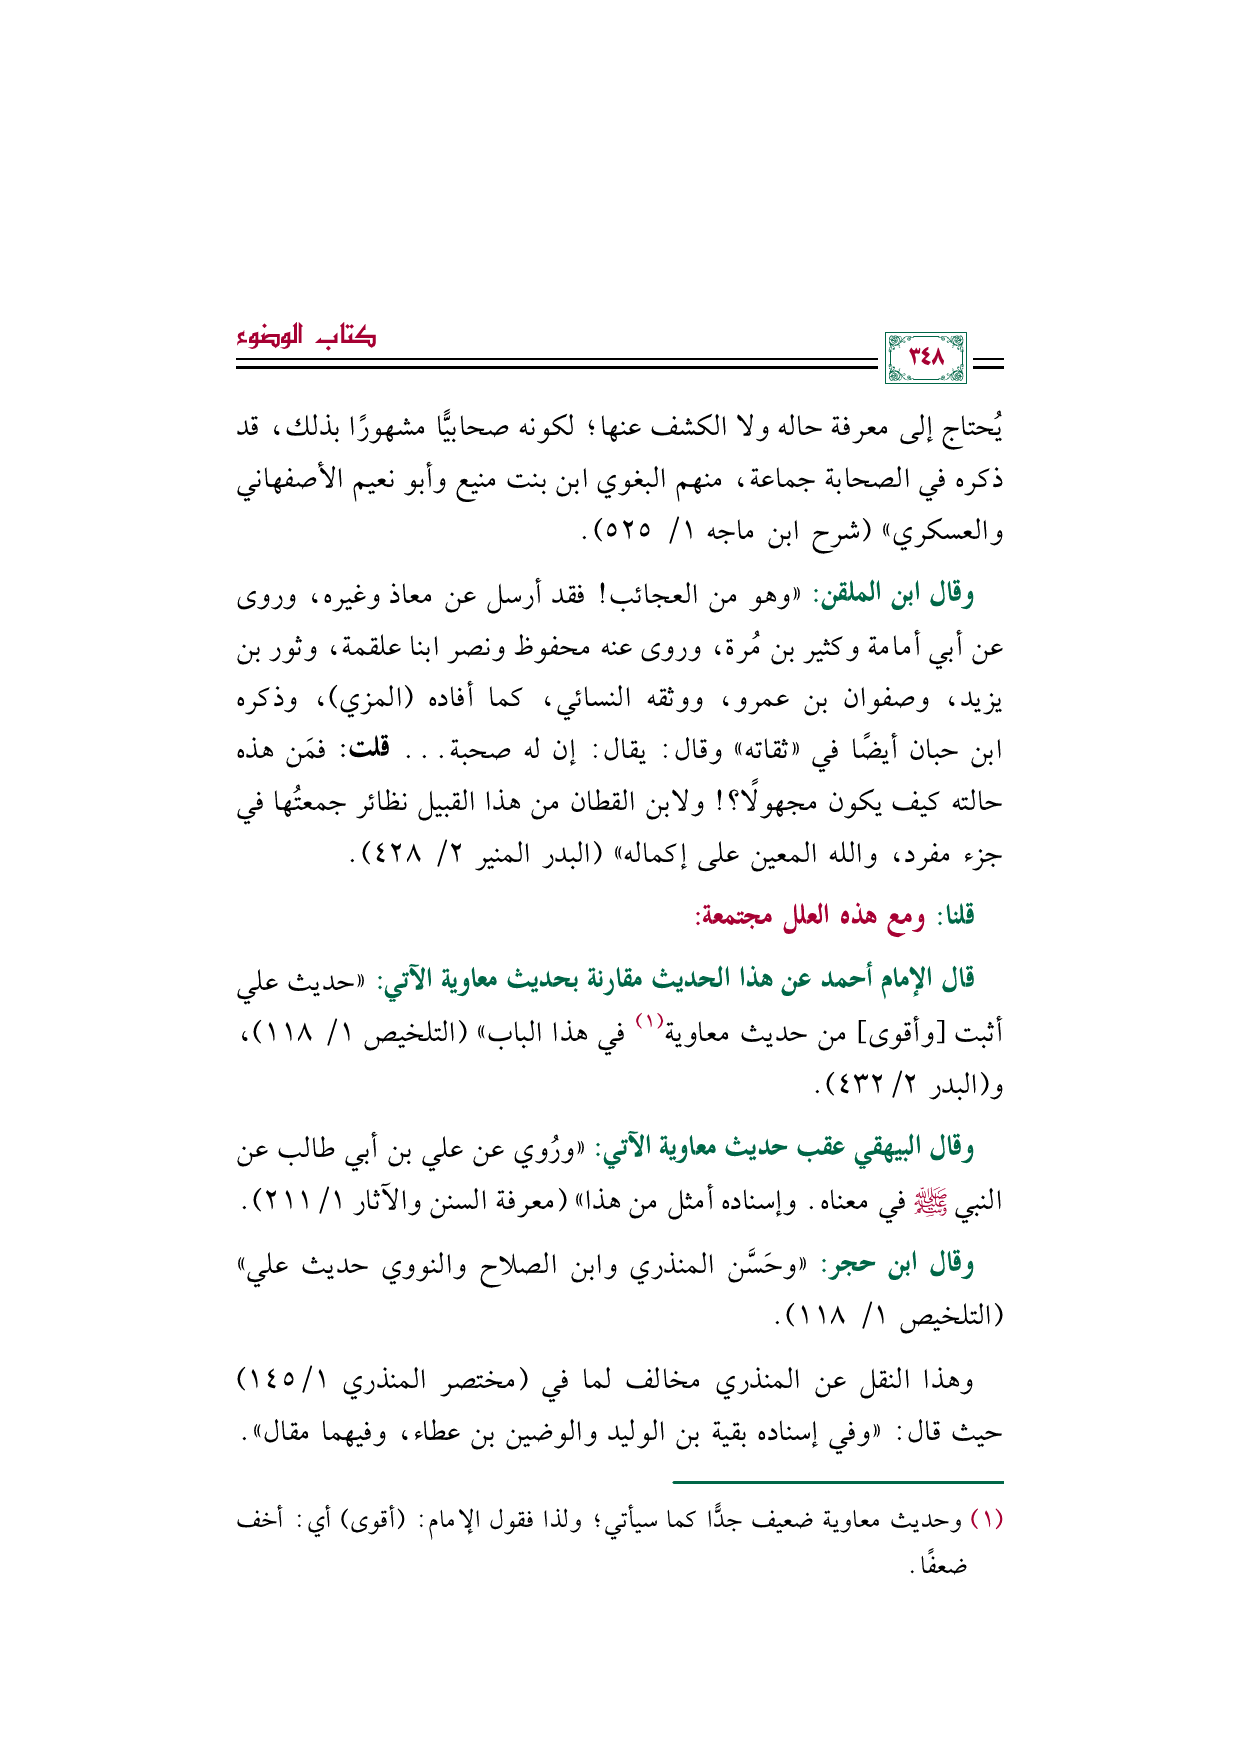 كتاب الوضوء
٣٤٨
يُحتاج إلى معرفة حاله ولا الكشف عنها؛ لكونه صحابيًّا مشهورًا بذلك، قد
ذكره في الصحابة جماعة، منهم البغوي ابن بنت منيع وأبو نعيم الأصفهاني
والعسكري» (شرح ابن ماجه ١/ ٥٢٥).
وقال ابن الملقن: «وهو من العجائب! فقد أرسل عن معاذ وغيره، وروى
عن أبي أمامة وكثير بن مُرة، وروى عنه محفوظ ونصر ابنا علقمة، وثور بن
يزيد، وصفوان بن عمرو، ووثقه النسائي، كما أفاده (المزي)، وذكره
ابن حبان أيضًا في «ثقاته» وقال: يقال: إن له صحبة... قلت: فمَن هذه
حالته كيف يكون مجهولًا؟! ولابن القطان من هذا القبيل نظائر جمعتُها في
جزء مفرد، والله المعين على إكماله» (البدر المنير ٢/ ٤٢٨).
قلنا: ومع هذه العلل مجتمعة:
قال الإمام أحمد عن هذا الحديث مقارنة بحديث معاوية الآتي: «حديث علي
أثبت [وأقوى] من حديث معاوية(١) في هذا الباب» (التلخيص ١/ ١١٨)،
و(البدر ٢/ ٤٣٢).
وقال البيهقي عقب حديث معاوية الآتي: «ورُوي عن علي بن أبي طالب عن
النبي ﷺ في معناه. وإسناده أمثل من هذا» (معرفة السنن والآثار ١/ ٢١١).
وقال ابن حجر: «وحَسَّن المنذري وابن الصلاح والنووي حديث علي»
(التلخيص ١/ ١١٨).
وهذا النقل عن المنذري مخالف لما في (مختصر المنذري ١/ ١٤٥)
حيث قال: «وفي إسناده بقية بن الوليد والوضين بن عطاء، وفيهما مقال».
(١) وحديث معاوية ضعيف جدًّا كما سيأتي؛ ولذا فقول الإمام: (أقوى) أي: أخف
ضعفًا.